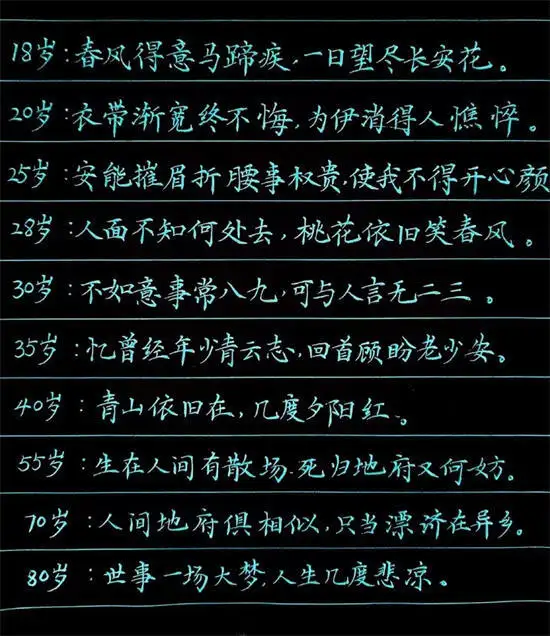 18岁：春风得意马蹄疾，一日望尽长安花。
20岁：衣带渐宽终不悔，为伊消得人憔悴。
25岁：安能摧眉折腰事权贵，使我不得开心颜
28岁：人面不知何处去，桃花依旧笑春风。
30岁：不如意事常八九，可与人言无二三。
35岁：忆曾经年少青云志，回首顾盼老少安。
40岁：青山依旧在，几度夕阳红。
55岁：生在人间有散场.死归地府又何妨。
70岁：人间地府俱相似，只当漂济在异乡。
80岁：世事一场大梦，人生几度悲凉。